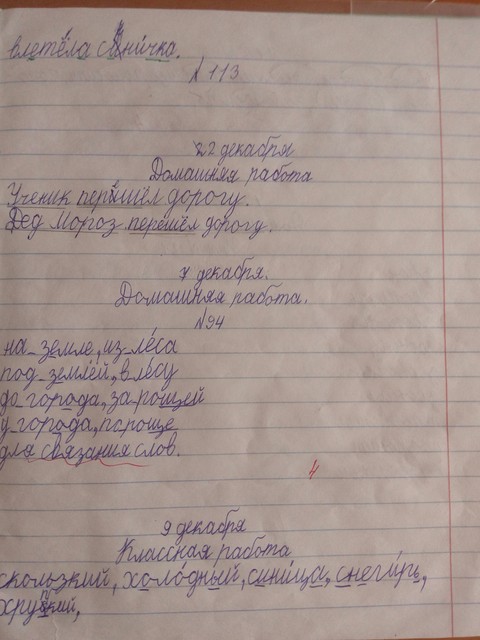 влетела синичка.
№ 113
22 декабря
Домашняя работа
Ученик перешёл дорогу.
Дед Мороз перешёл дорогу.
7 декабря.
Домашняя работа.
№94
на земле, из лéса
под землёй, в лесу
до города, за рощей
у города, по роще
для связания слов.
4
9 декабря
Классная работа
скользкий, холóдный, синица, снегирь,
хрупкий,